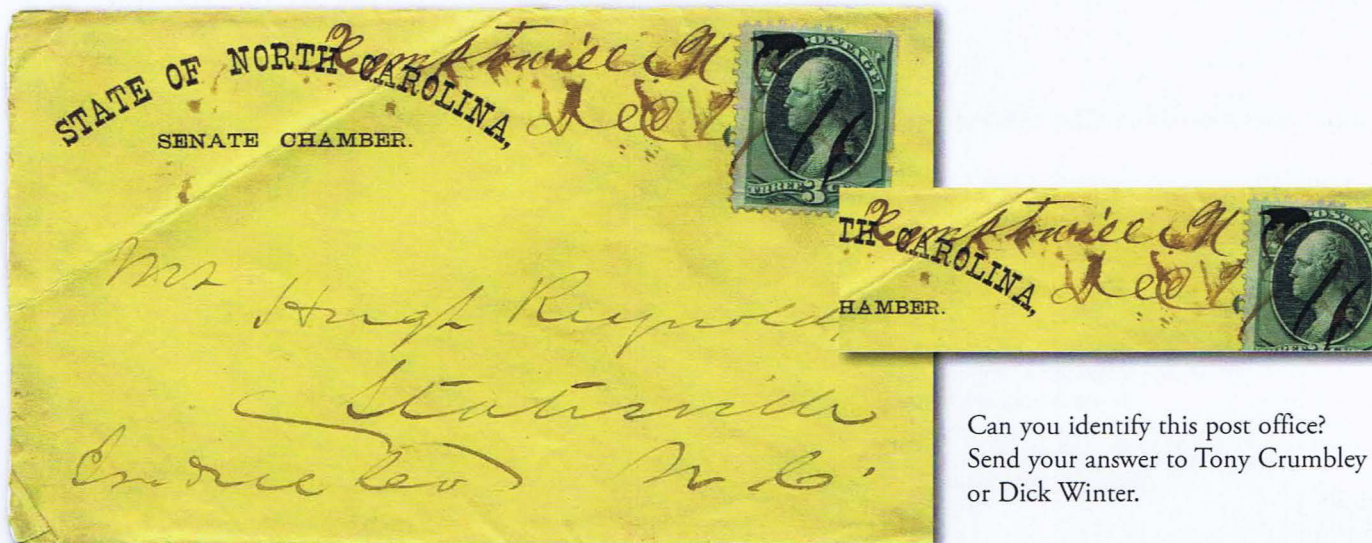 STATE OF NORTH CAROLINA,
SENATE CHAMBER.
Dec
POSTAGE
THREE 3
Hugh Reynolds
Statesville
N. C.
TH CAROLINA,
HAMBER.
Dec
POSTAGE
Can you identify this post office?
Send your answer to Tony Crumbley
or Dick Winter.